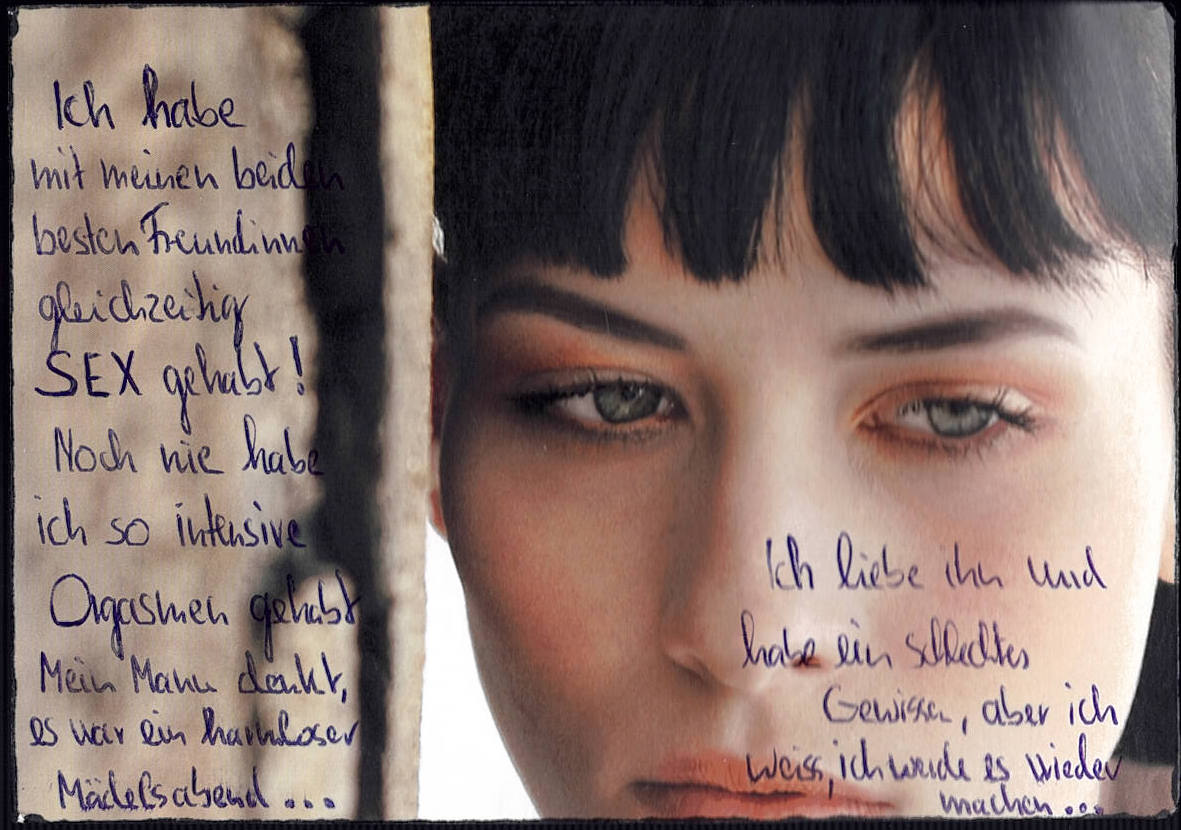 Ich habe
mit meinen beiden
besten Freundinnen
gleichzeitig
SEX gehabt!
Noch nie habe
ich so intensive
Orgasmen gehabt
Mein Mann denkt,
es war ein harmloser
Mädelsabend ...
Ich liebe ihn und
habe ein schlechtes
Gewissen, aber ich
weiss, ich werde es wieder
machen ...